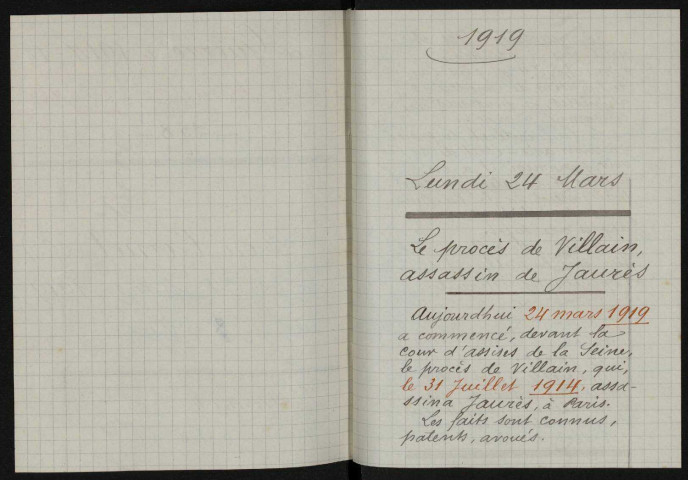 1919
Lundi 24 Mars
Le procès de Villain,
assassin de Jaurès
Aujourdhui 24 mars 1919
a commencé, devant la
cour d'assises de la Seine,
le procès de Villain, qui,
le 31 Juillet 1914, assa-
ssina Jaurès, à Paris.
Les faits sont connus,
patents, avoués.